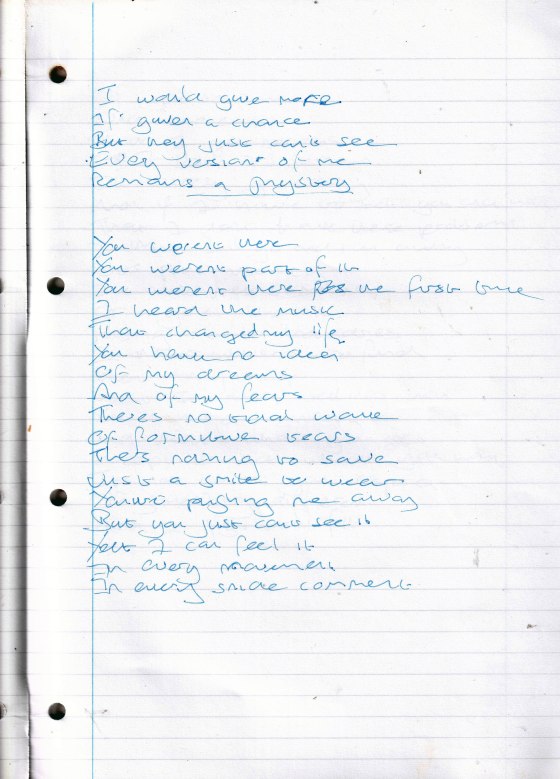 I would give more
If given a chance
But they just can't see
Every version of me
Remains a mystery
You weren't there
You weren't part of it
You weren't there the first time
I heard the music
That changed my life
You have no idea
Of my dreams
And of my fears
Theres no tidal wave
Of formative tears
Theres nothing to save
Just a smile to wear
pushing me away
But you just can't see it
Yet I can feel it
In every movement
In every snide comment